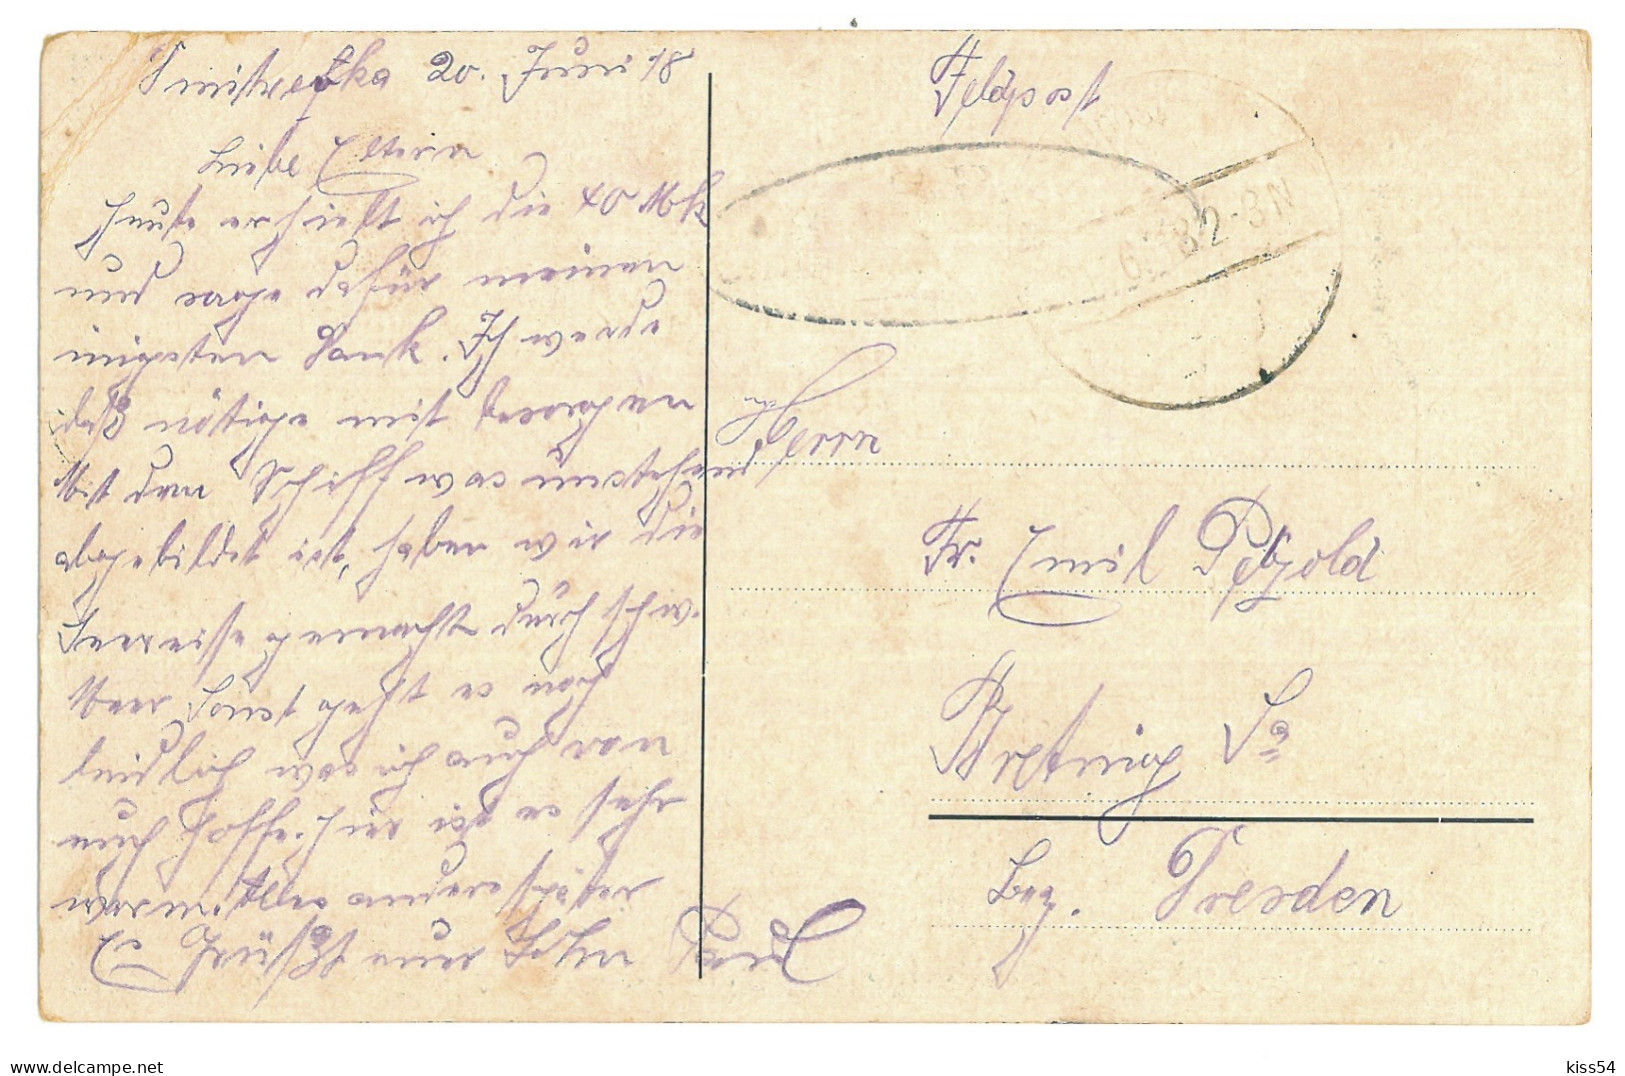 Dmitrefka 20. Juni 18
Liebe Eltern
Heute erhielt ich die 40 Mk
und sage dafür meinen
innigsten Dank. Ich werde
daß nötige mit besorgen
Mit den Schiff was umstehend
abgebildet ist, haben wir die
Seereise gemacht durch schw.
Meer Sonst geht es noch
leidlich was ich auch von
euch hoffe. Hier ist es sehr
warm. Alles andere später
Es Grüßt euer Sohn Paul
Feldpost
18 2-3N
Herrn
Fr. Emil Petzold
Bretnig Sa
Bez. Dresden
www.delcampe.net
kiss54